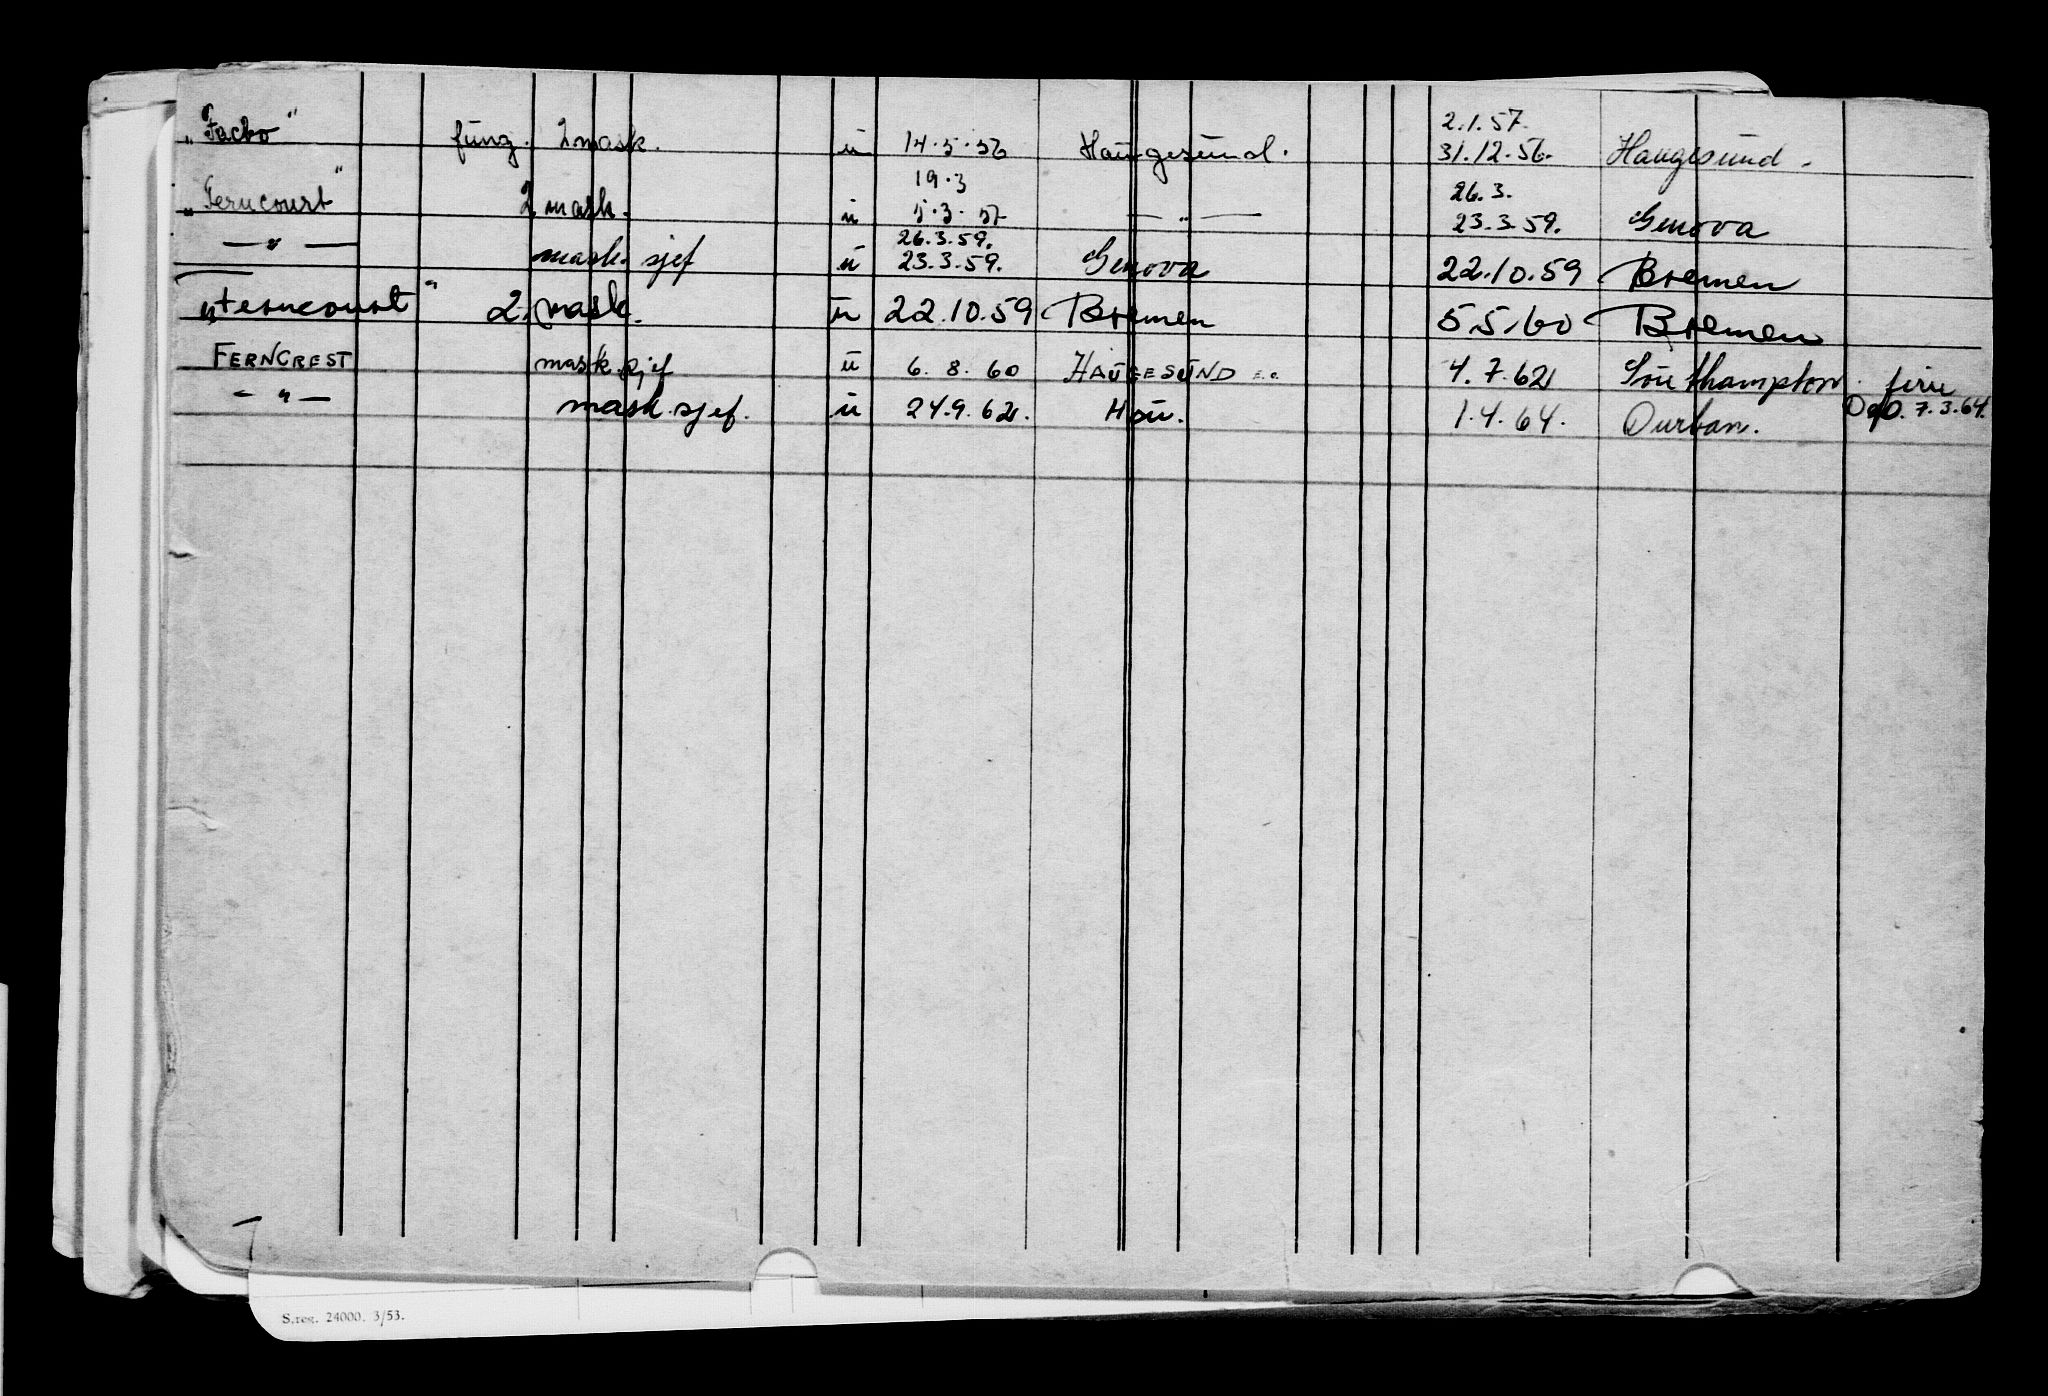 2.1.57.
„Facto" fung. 2 mask. u 14.5.56 Haugesund. 31.12.56. Haugesund.
19.3 26.3.
„Ferncourt" 2 mask. u 5.3.57 — " — 23.3.59. Genova
26.3.59.
— " — mask. sjef u 23.3.59. Genova 22.10.59 Bremen
„Ferncourt" 2. mask. u 22.10.59 Bremen 5.5.60 Bremen
FERNCREST mask.sjef u 6.8.60 HAUGESUND 4.7.62 Southampton. ferie
— " — mask.sjef. u 24.9.62. Hau. 1.4.64. Durban. Opp. 7.3.64.
S.reg. 24000. 3/53.